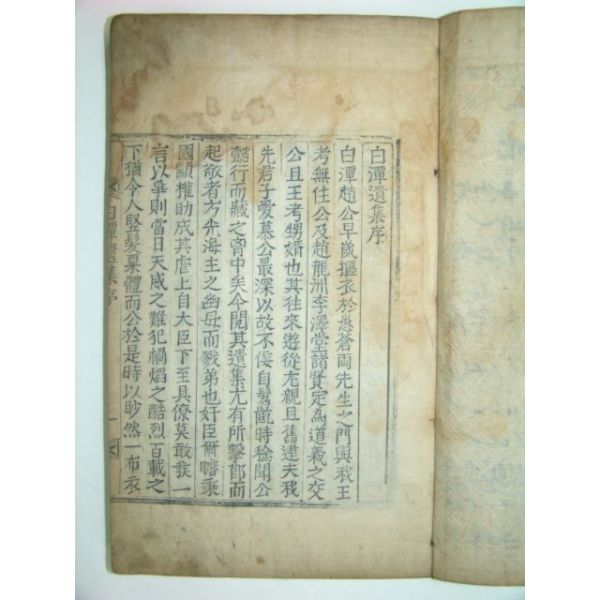 白潭遺集序
白潭趙公早歲摳衣於愚蒼兩先生之門與我王
考無住公及趙龍洲李澤堂諸賢定為道義之交
公且王考甥婚也其往來遊從尤親且舊逮夫我
先君子愛慕公最深以故不佞自髫齔時稔聞公
懿行而藏之膏中矣今閱其遺集尤有所擊節而
起敬者方光海主之幽母而戕弟也奸臣爾瞻乘
國顓權助成其虐上自大臣下至具僚莫敢發一
言以爭則當日天威之難犯禍熖之酷烈百載之
下猶令人竪髮栗體而公於是時以眇然一布衣
白潭遺集序 一